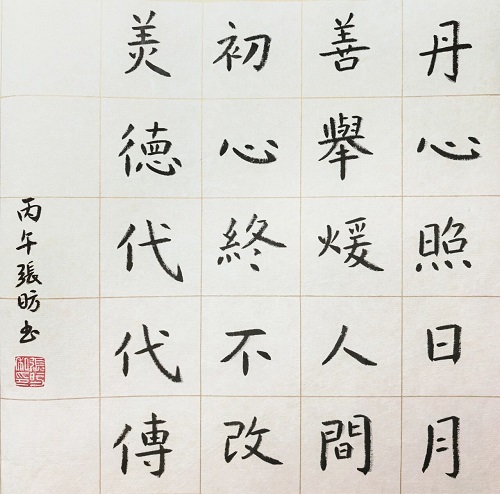 丹心照日月
善舉煖人間
初心終不改
美德代代傳
丙午張昉书